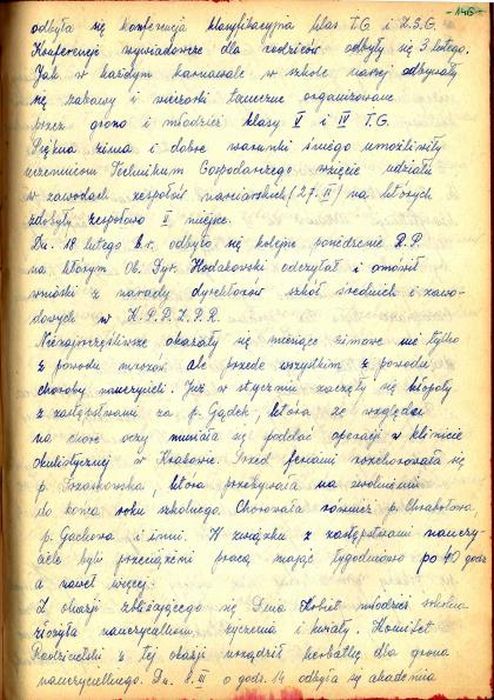 -146-
odbyła się konferencja klasyfikacyjna filas T.G i Z.S.G.
Konferencje wywiadowcze dla rodziców odbyły się 3 lutego.
Jak w każdym karnawale w szkole naszej odbywały
się zabawy i wieczorki taneczne organizowane
przez grono i młodzież klasy V i IV T.G.
Piękna zima i dobre warunki śniegowe umożliwiły
uczennicom Technikum Gospodarczego wzięcie udziału
w zawodach zespołów narciarskich (27.II) na których
zdobyły zespołowo II miejsce.
Dn. 18 lutego b.r. odbyło się kolejne posiedzenie R.P.
na którym Ob. Dyr. Hodakowski odczytał i omówił
wnioski z narady dyrektorów szkół średnich i zawo-
dowych w K.P.P.Z.P.R.
Nienajszczęśliwsze okazały się miesiące zimowe nie tylko
z powodu mrozów ale przede wszystkim z powodu
choroby nauczycieli. Już w styczniu zaczęły się kłopoty
z zastępstwami za p. Gądek, która ze względu
na chore oczy musiała się poddać operacji w klinice
okulistycznej w Krakowie. Przed feriami rozchorowała się
p. , która przebywała na zwolnieniu
do końca roku szkolnego. Chorowała również p. Chrabołowa,
p. Gachowa i inni. W związku z zastępstwami nauczy-
ciele byli przeciążeni pracą mając tygodniowo po 40 godz
a nawet więcej.
Z okazji zbliżającego się Dnia Kobiet młodzież szkolna
złożyła nauczycielkom życzenia i kwiaty. Komitet
Rodzicielski z tej okazji urządził herbatkę dla grona
nauczycielskiego. Dn. 8.III o godz. 14 odbyła się akademia